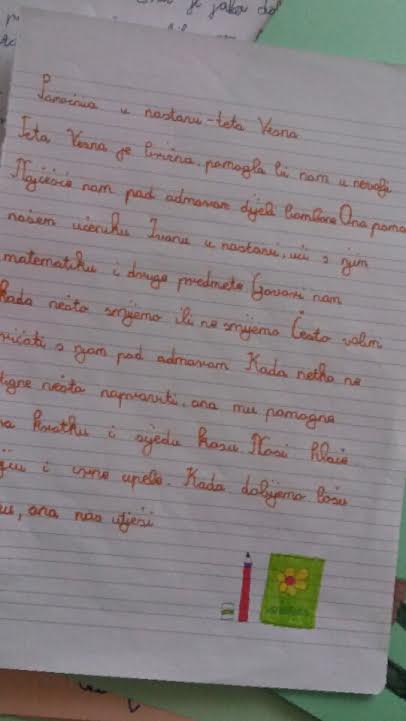 je jako dob
Pomoćnica u nastavi - teta Vesna
Teta Vesna je lirična, pomogla bi nam u nevolji
Najčešće nam pod odmorom dijeli bombone Ona poma
našem učeniku Ivanu u nastavi, uči s njim
matematiku i druge predmete Govori nam
kada nešto smijemo ili ne smijemo Često volim
pričati s njom pod odmorom Kada netko ne
tigne nešto napraviti, ona mu pomogne
kratku i sijedu kosu. Nosi hlače
i crne cipele. Kada dobijemo lošu
nu, ona nas utješi